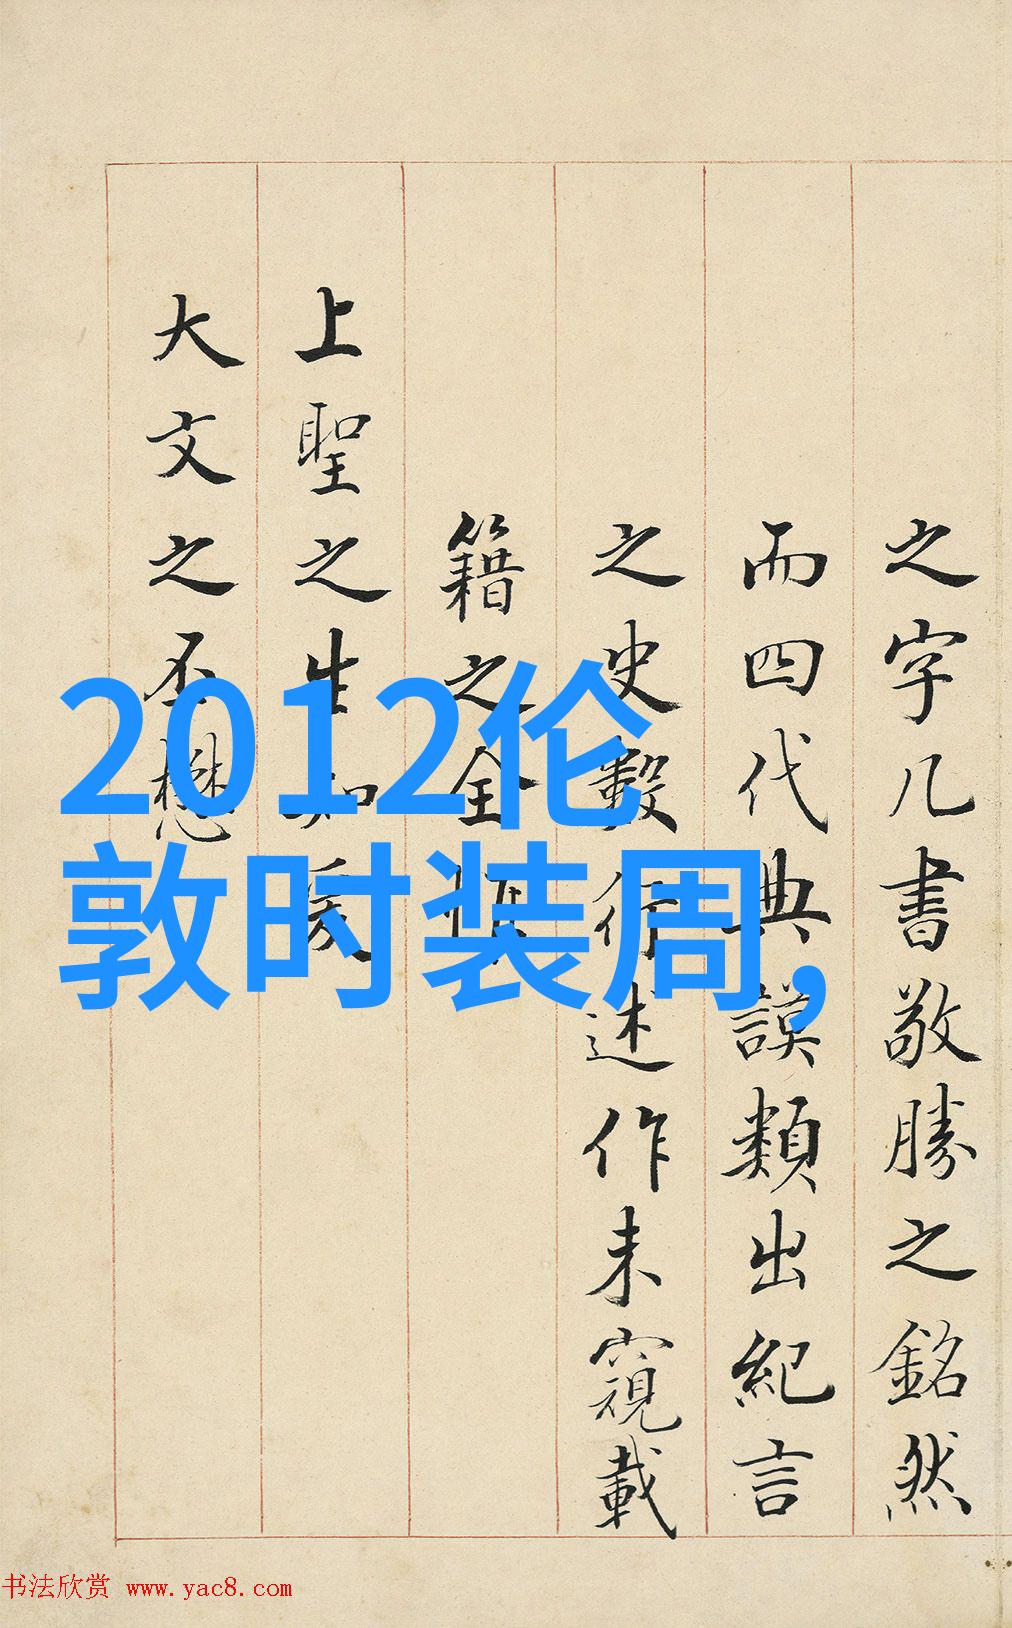 之字几書敬勝之銘然
而四代典謨類出紀言
之史數行述作未窺載
籍之全
上聖之生知
大文之丕懋
2012伦
敦时装周,
书法欣赏 www.yac8.com